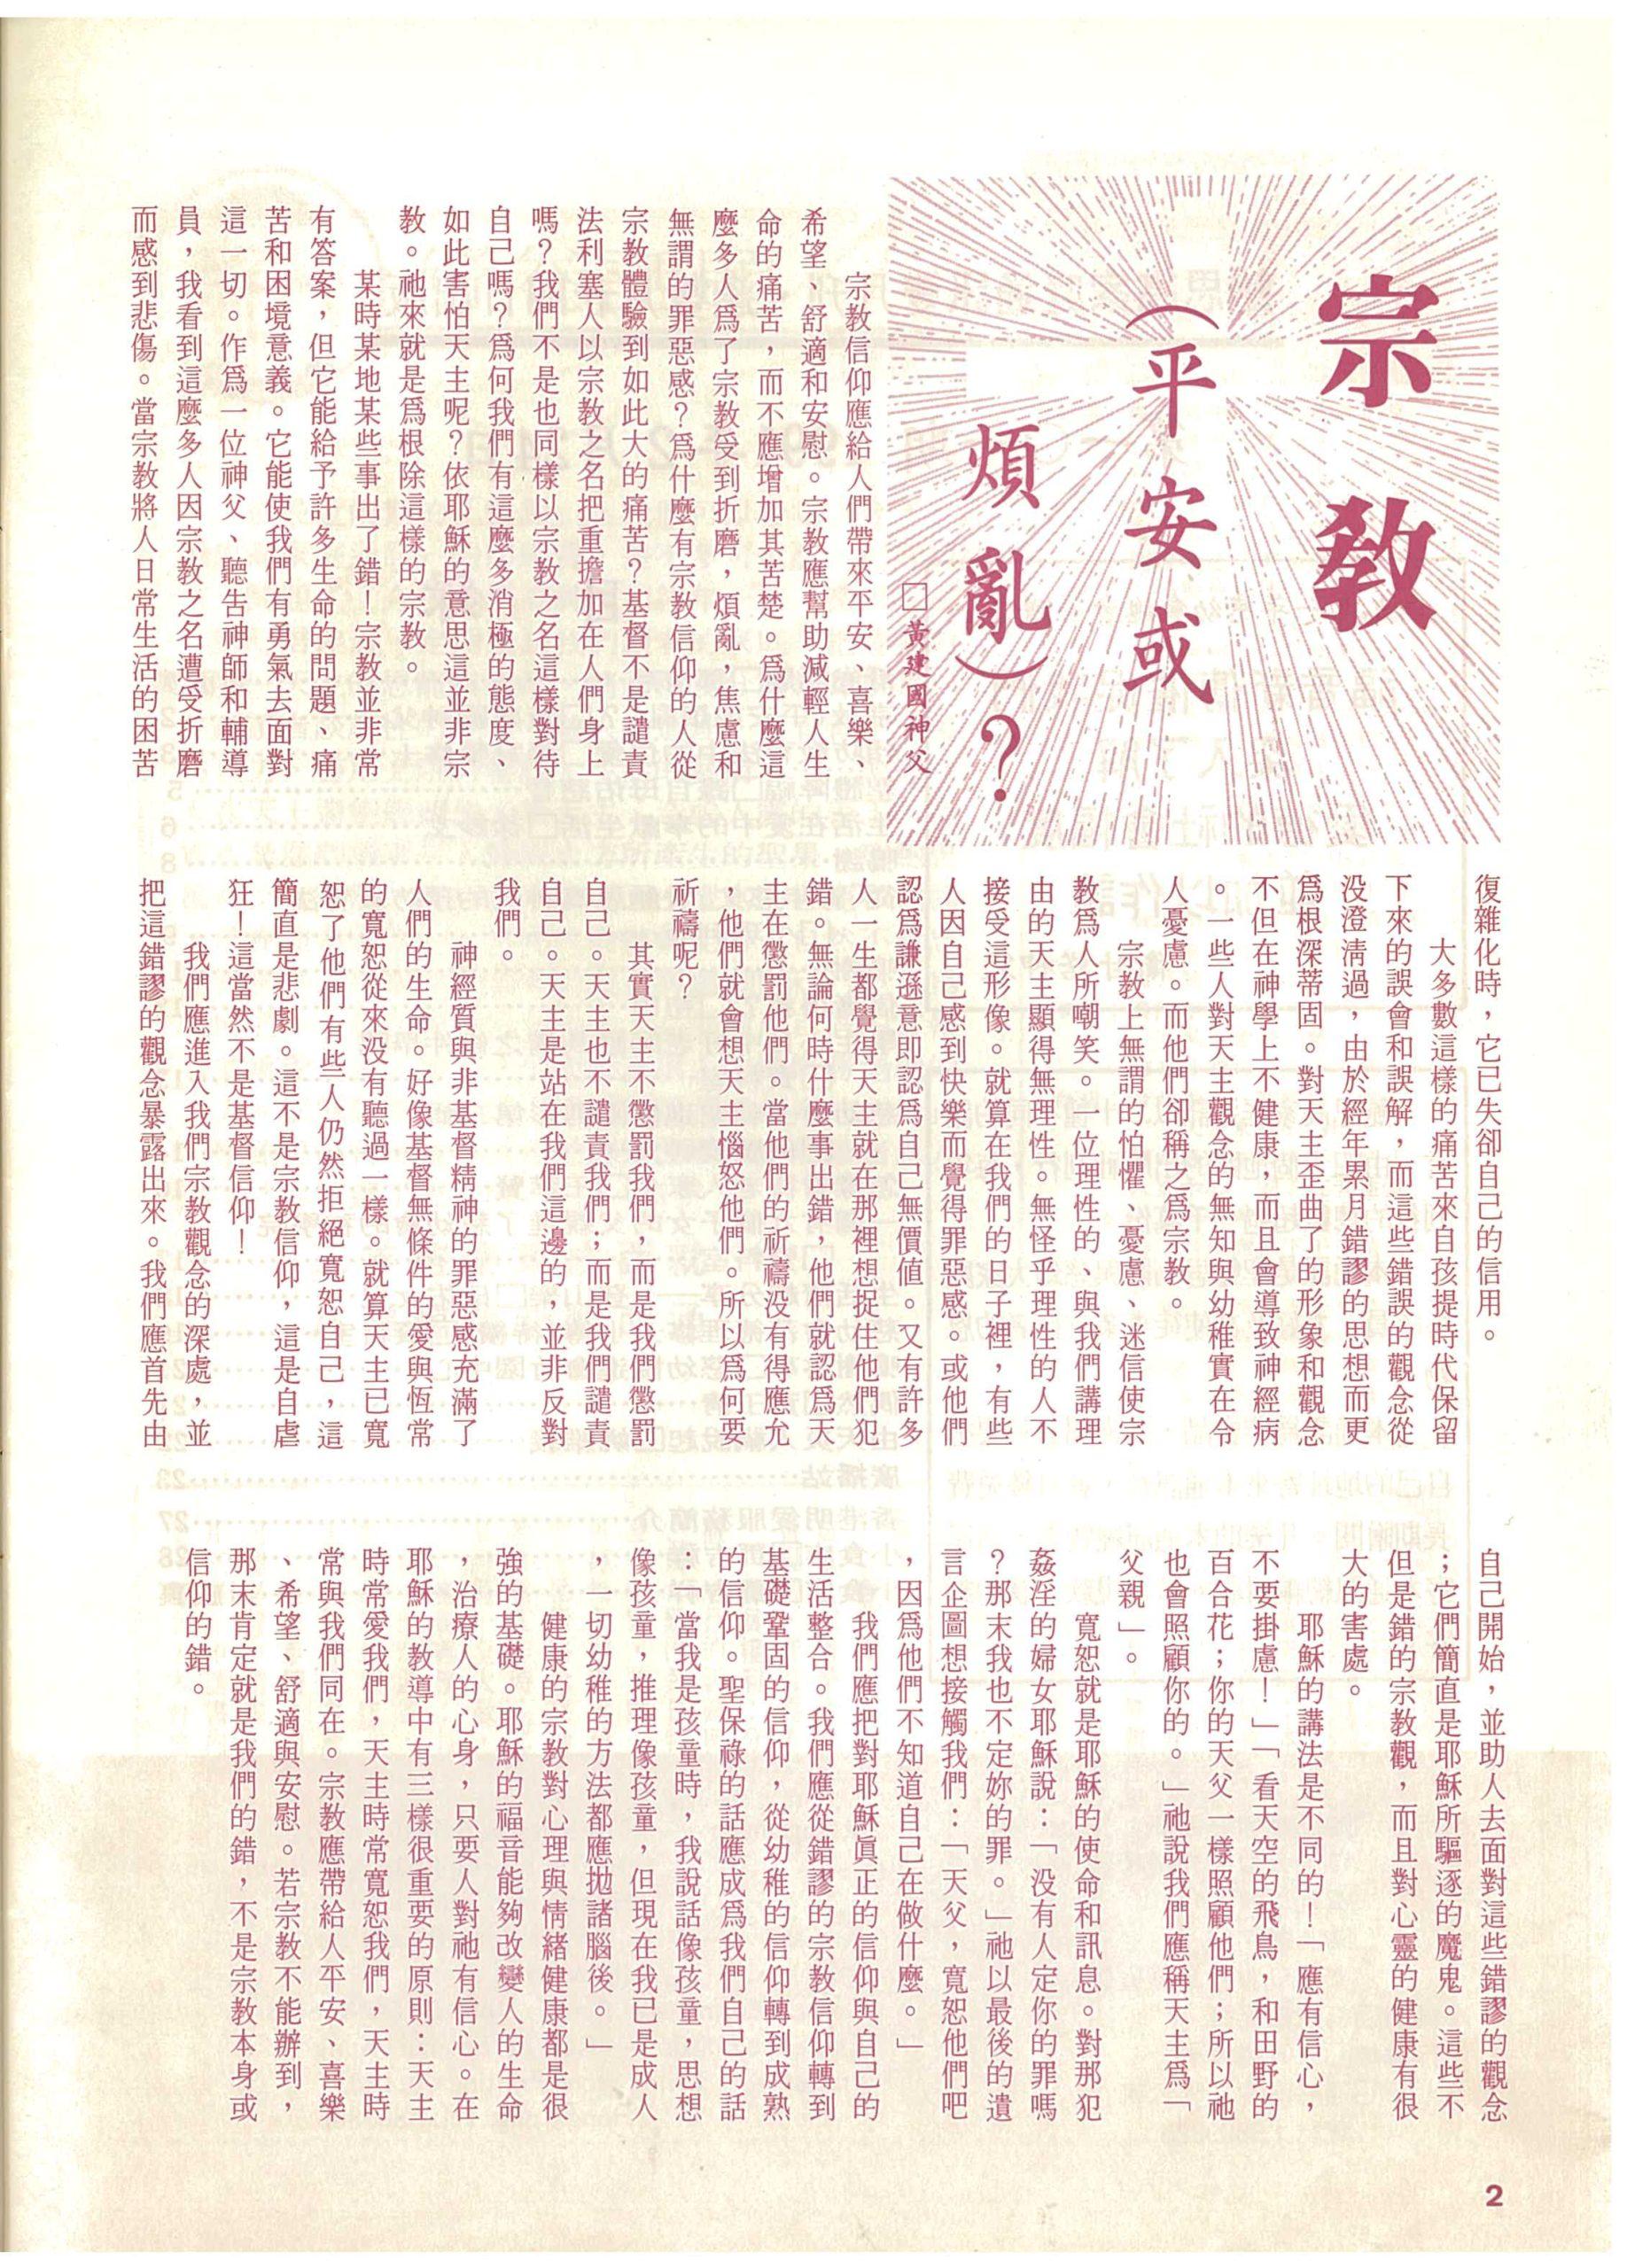 宗教
(平安或
煩亂)?
□黃建國神父
宗教信仰應給人們帶來平安、喜樂、
希望、舒適和安慰。宗教應幫助減輕人生
命的痛苦，而不應增加其苦楚。爲什麼這
麼多人爲了宗教受到折磨，煩亂，焦慮和
無謂的罪惡感？爲什麼有宗教信仰的人從
宗教體驗到如此大的痛苦？基督不是譴責
法利塞人以宗教之名把重擔加在人們身上
嗎？我們不是也同樣以宗教之名這樣對待
自己嗎？爲何我們有這麼多消極的態度、
如此害怕天主呢？依耶穌的意思這並非宗
教。祂來就是爲根除這樣的宗教。
某時某地某些事出了錯！宗教並非常
有答案，但它能給予許多生命的問題、痛
苦和困境意義。它能使我們有勇氣去面對
這一切。作爲一位神父、聽告神師和輔導
員，我看到這麼多人因宗教之名遭受折磨
而感到悲傷。當宗教將人日常生活的困苦
復雜化時，它已失卻自己的信用。
大多數這樣的痛苦來自孩提時代保留
下來的誤會和誤解，而這些錯誤的觀念從
没澄淸過，由於經年累月錯謬的思想而更
爲根深蒂固。對天主歪曲了的形象和觀念
不但在神學上不健康，而且會導致神經病
。一些人對天主觀念的無知與幼稚實在令
人憂慮。而他們卻稱之爲宗教。
宗教上無謂的怕懼、憂慮、迷信使宗
教爲人所嘲笑。一位理性的、與我們講理
由的天主顯得無理性。無怪乎理性的人不
接受這形像。就算在我們的日子裡，有些
人因自己感到快樂而覺得罪惡感。或他們
認爲謙遜意即認爲自己無價值。又有許多
人一生都覺得天主就在那裡想捉住他們犯
錯。無論何時什麼事出錯，他們就認爲天
主在懲罰他們。當他們的祈禱没有得應允
，他們就會想天主惱怒他們。所以爲何要
祈禱呢？
其實天主不懲罰我們，而是我們懲罰
自己。天主也不譴責我們；而是我們譴責
自己。天主是站在我們這邊的，並非反對
我們。
神經質與非基督精神的罪惡感充滿了
人們的生命。好像基督無條件的愛與恆常
的寬恕從來没有聽過一樣。就算天主已寬
恕了他們有些人仍然拒絕寬恕自己，這
簡直是悲劇。這不是宗教信仰，這是自虐
狂！這當然不是基督信仰！
我們應進入我們宗教觀念的深處，並
把這錯謬的觀念暴露出來。我們應首先由
自己開始，並助人去面對這些錯謬的觀念
；它們簡直是耶穌所驅逐的魔鬼。這些不
但是錯的宗教觀，而且對心靈的健康有很
大的害處。
耶穌的講法是不同的！「應有信心，
不要掛慮！」「看天空的飛鳥，和田野的
百合花；你的天父一樣照顧他們；所以祂
也會照顧你的。」祂說我們應稱天主爲「
父親」。
寬恕就是耶穌的使命和訊息。對那犯
姦淫的婦女耶穌說：「没有人定你的罪嗎
？那末我也不定妳的罪。」祂以最後的遺
言企圖想接觸我們：「天父，寬恕他們吧
，因爲他們不知道自己在做什麼。」
我們應把對耶穌眞正的信仰與自己的
生活整合。我們應從錯謬的宗教信仰轉到
基礎鞏固的信仰，從幼稚的信仰轉到成熟
的信仰。聖保祿的話應成爲我們自己的話
：「當我是孩童時，我說話像孩童，思想
像孩童，推理像孩童，但現在我已是成人
，一切幼稚的方法都應拋諸腦後。」
健康的宗教對心理與情緒健康都是很
強的基礎。耶穌的福音能夠改變人的生命
，治療人的心身，只要人對祂有信心。在
耶穌的教導中有三樣很重要的原則：天主
時常愛我們，天主時常寬恕我們，天主時
常與我們同在。宗教應帶給人平安、喜樂
、希望、舒適與安慰。若宗教不能辦到，
那末肯定就是我們的錯，不是宗教本身或
信仰的錯。
2